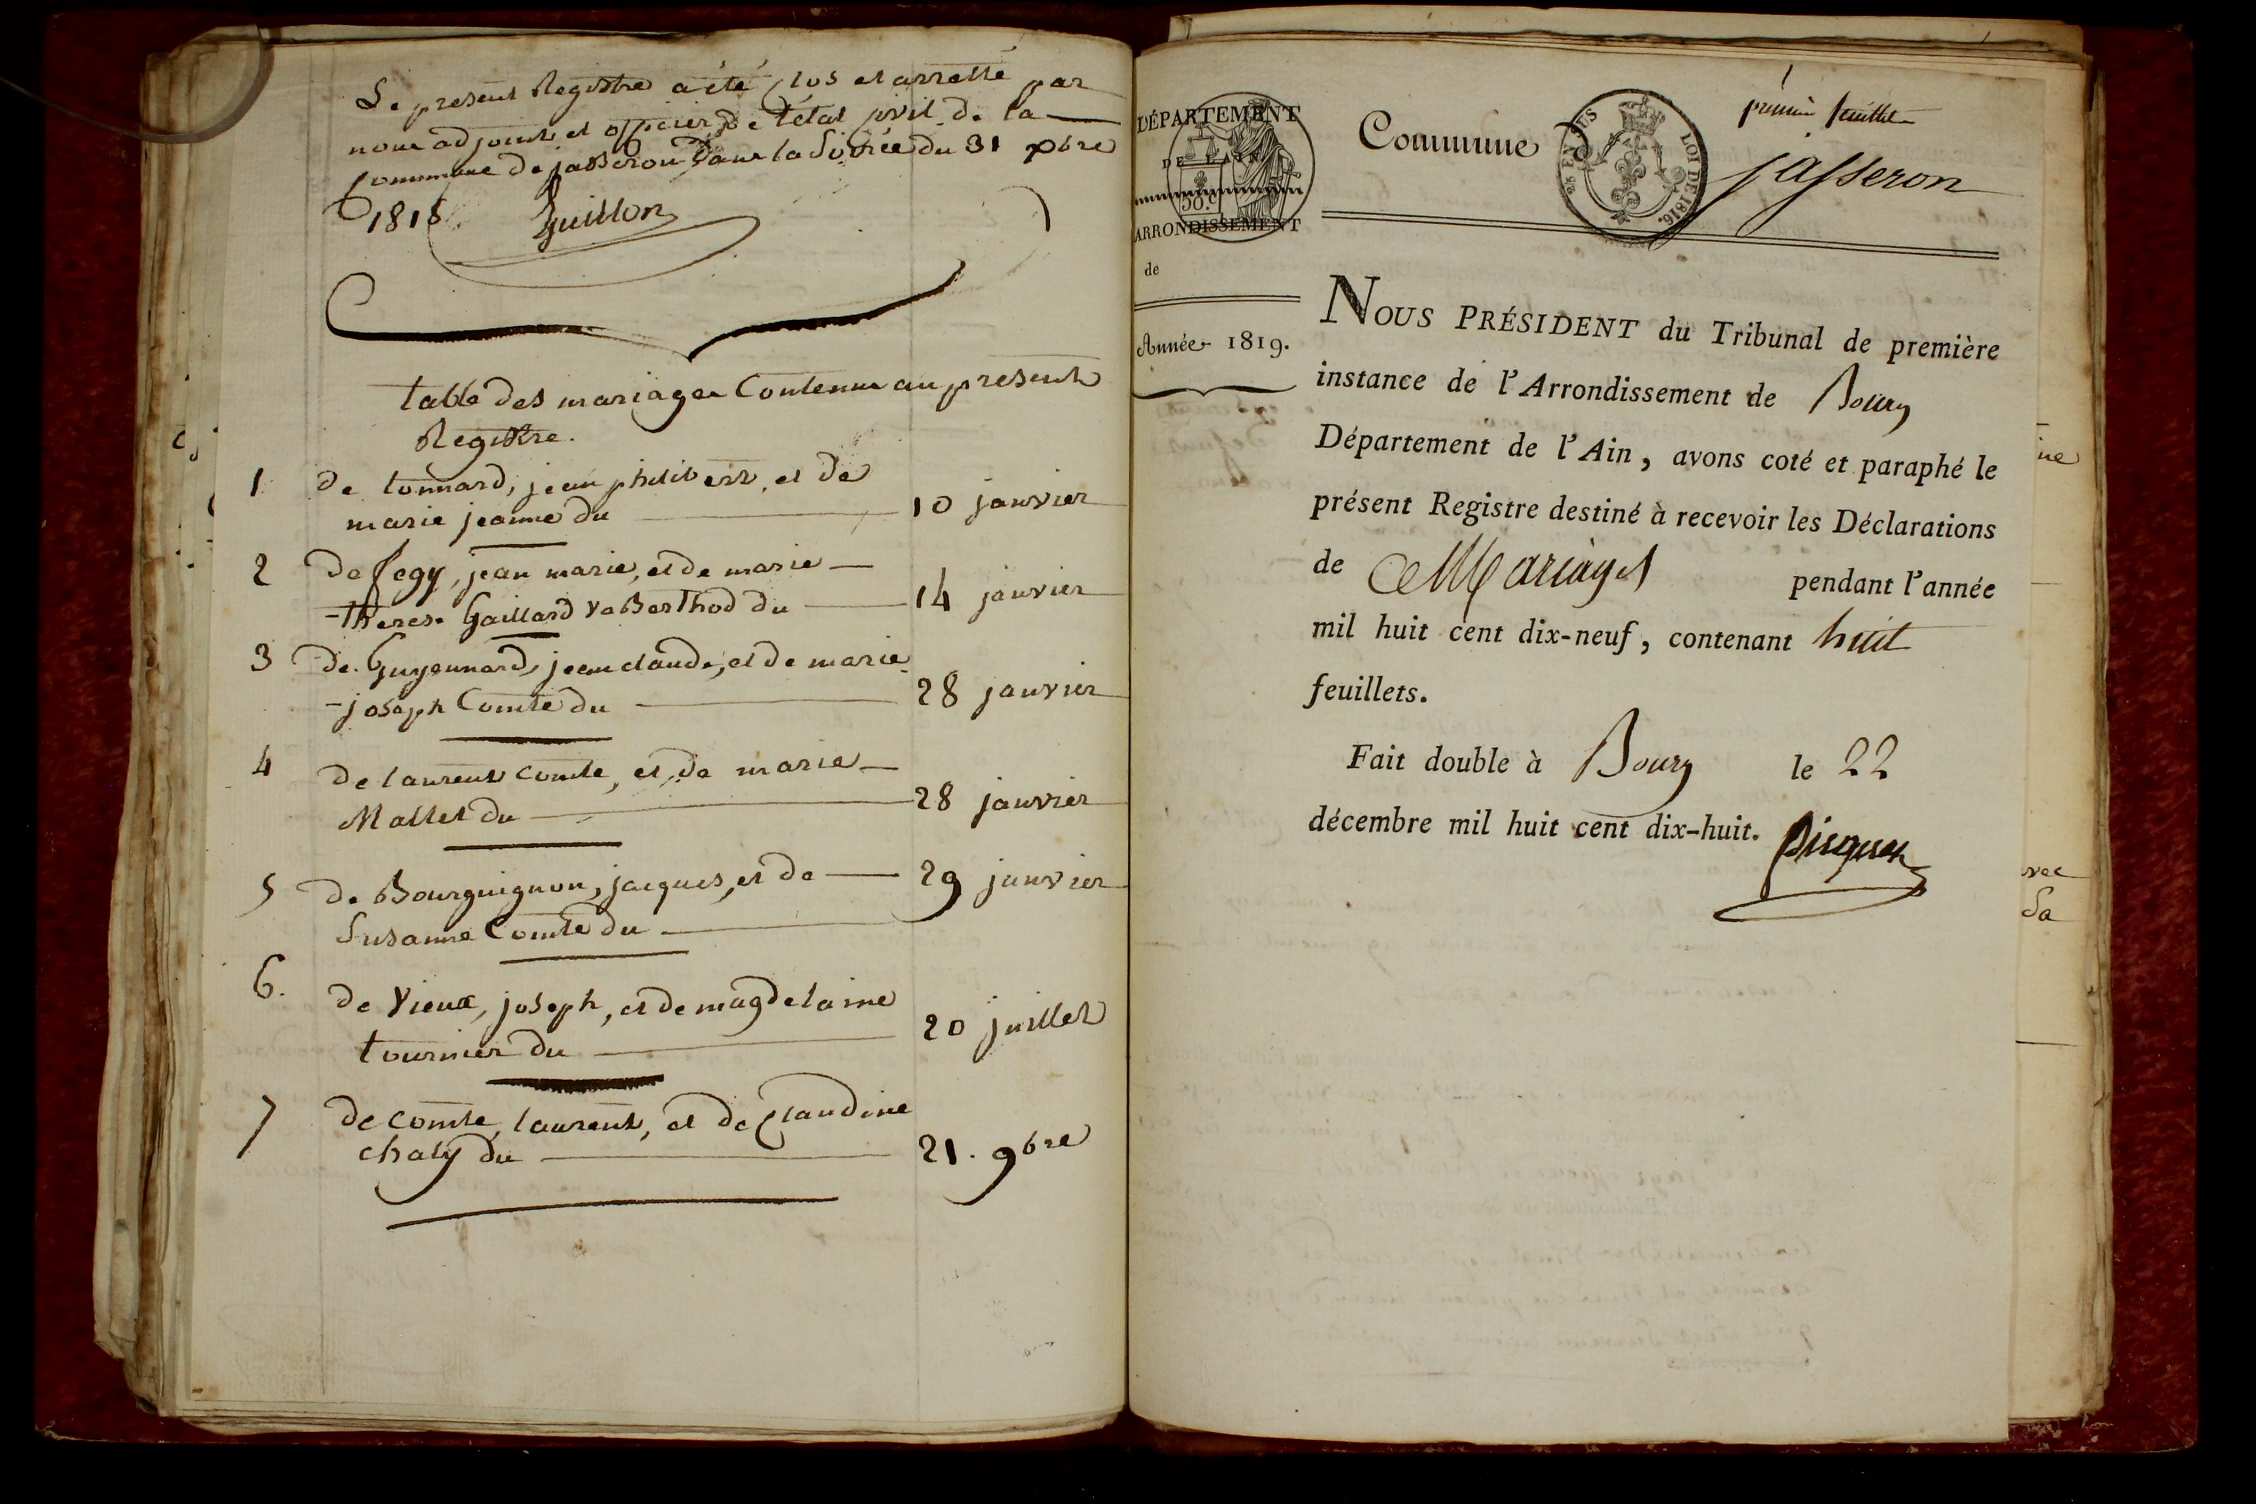 Le present Registre a été Clos et arretté par
nous adjoint et officier de l'état Civil de la
Commune de jasseron dans la Soirée du 31 xbre
1818 Guillon
table des mariages Contenue au present
Registre.
1 de tonnard, jean philibert, et de
marie jeanne du 10 janvier
2 de fegy, jean marie, et de marie
therese Gaillard ve Berthod du 14 janvier
3 de Guyennard, jean claude, et de marie
joseph Comte du 28 janvier
4 de laurent comte, et de marie
Mallet du 28 janvier
5 de Bourguignon, jacques, et de 29 janvier
Susanne Comte du
6. de Vieux, joseph, et de magdelaine
tournier du 20 juillet
7 de comte, laurent, et de Claudine
chaty du 21. 9bre
DÉPARTEMENT
DE L'AIN
50.c
ARRONDISSEMENT
de
Année 1819.
1
premier feuillet
Commune d
EN SUS
LOI DE 1816.
Jasseron
NOUS PRÉSIDENT du Tribunal de première
instance de l'Arrondissement de Bourg
Département de l'Ain, avons coté et paraphé le
présent Registre destiné à recevoir les Déclarations
de Mariages pendant l'année
mil huit cent dix-neuf, contenant huit
feuillets.
Fait double à Bourg le 22
décembre mil huit cent dix-huit.